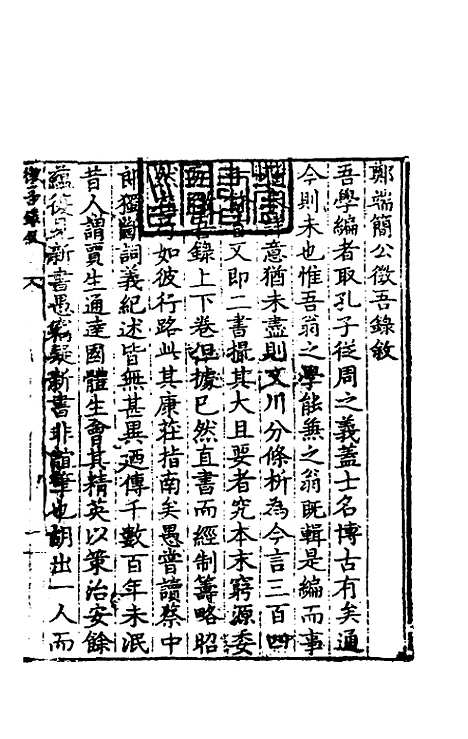 鄭端簡公徵吾錄敘
吾學編者取孔子從周之義蓋士名博古有矣通
今則未也惟吾翁之學能兼之翁旣輯是編而事
意猶未盡則又川分條析為今言三百四
文即二書撮其大且要者究本末窮源委
錄上下卷但據已然直書而經制籌略昭
如彼行路此其康莊指南矣愚嘗讀蔡中
郎獨斷詞義紀述皆無甚異廼傳千數百年未泯
昔人謂賈生通達國體生會其精英以策治安餘
蘊後見新書愚竊疑新書非誼筆也胡出一人而